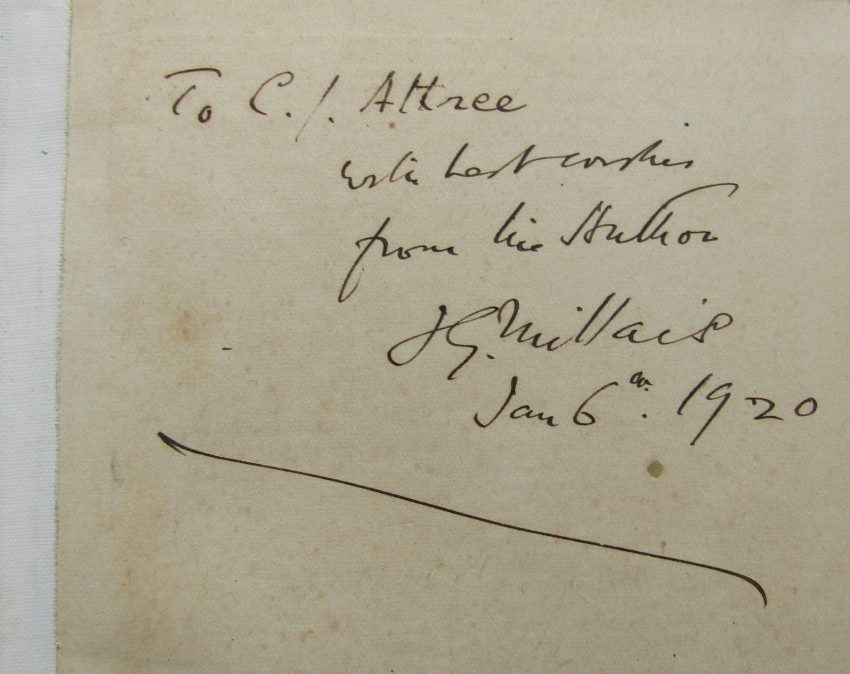 To C. J. Attree
with best wishes
from the Author
J G. Millais
Jan 6th. 1920